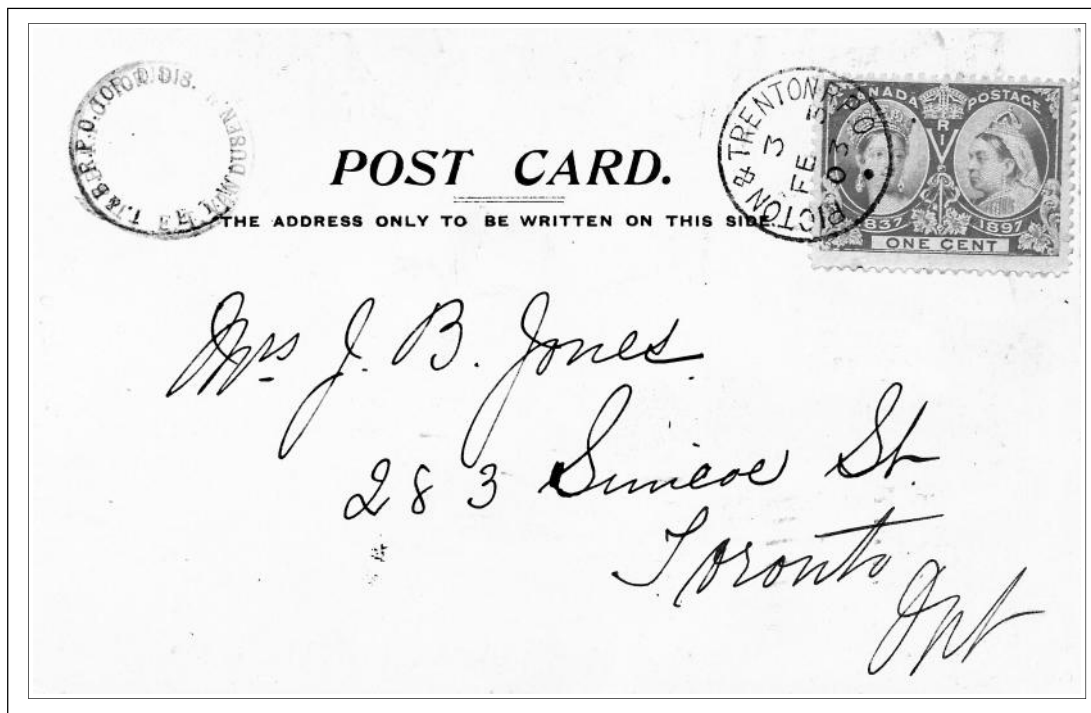 POST CARD.
THE ADDRESS ONLY TO BE WRITTEN ON THIS SIDE.
PICTON & TRENTON R.P.O
3
FE 3
03
CANADA POSTAGE
V
R I
1837 1897
ONE CENT
Mrs J. B. Jones.
283 Simcoe St.
Toronto
Ont